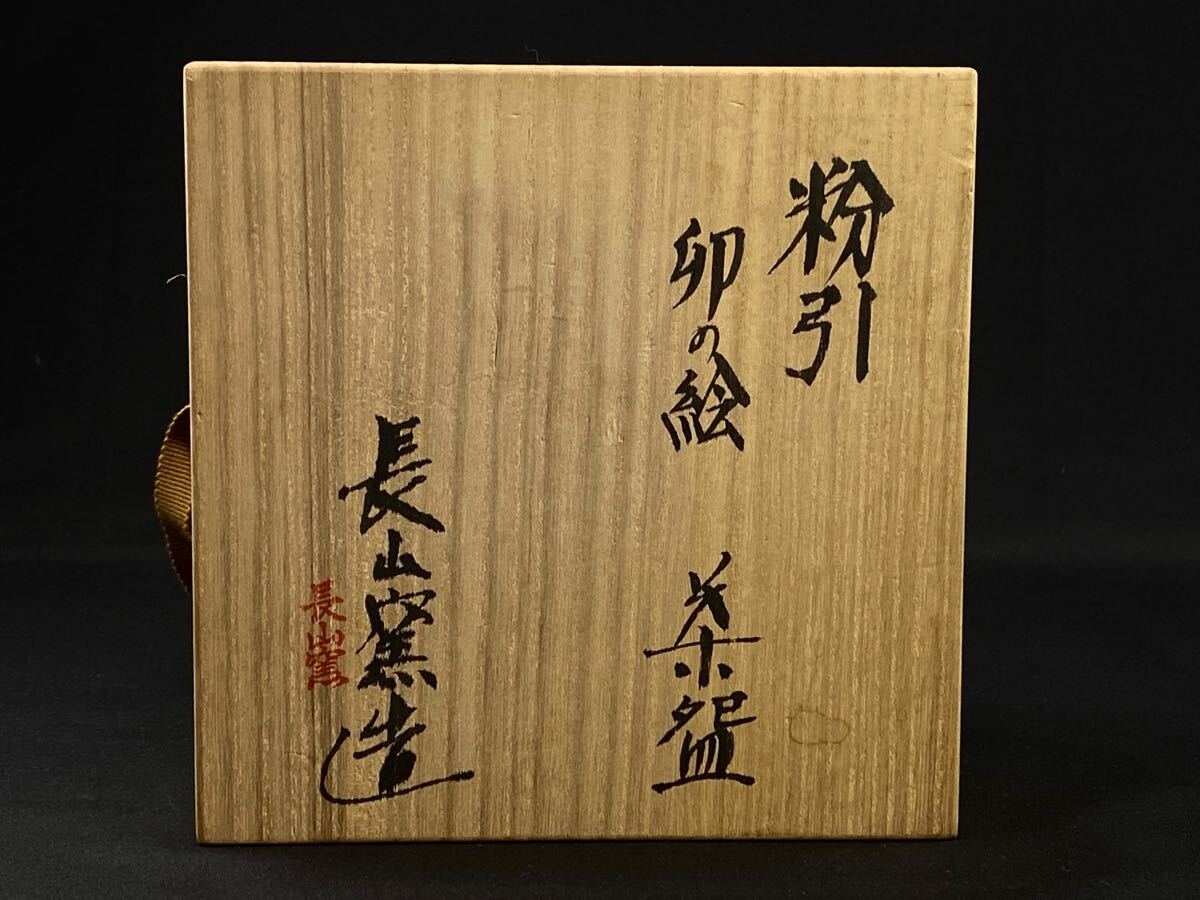 粉引
卯の絵 茶盌
長山窯造
長山窯